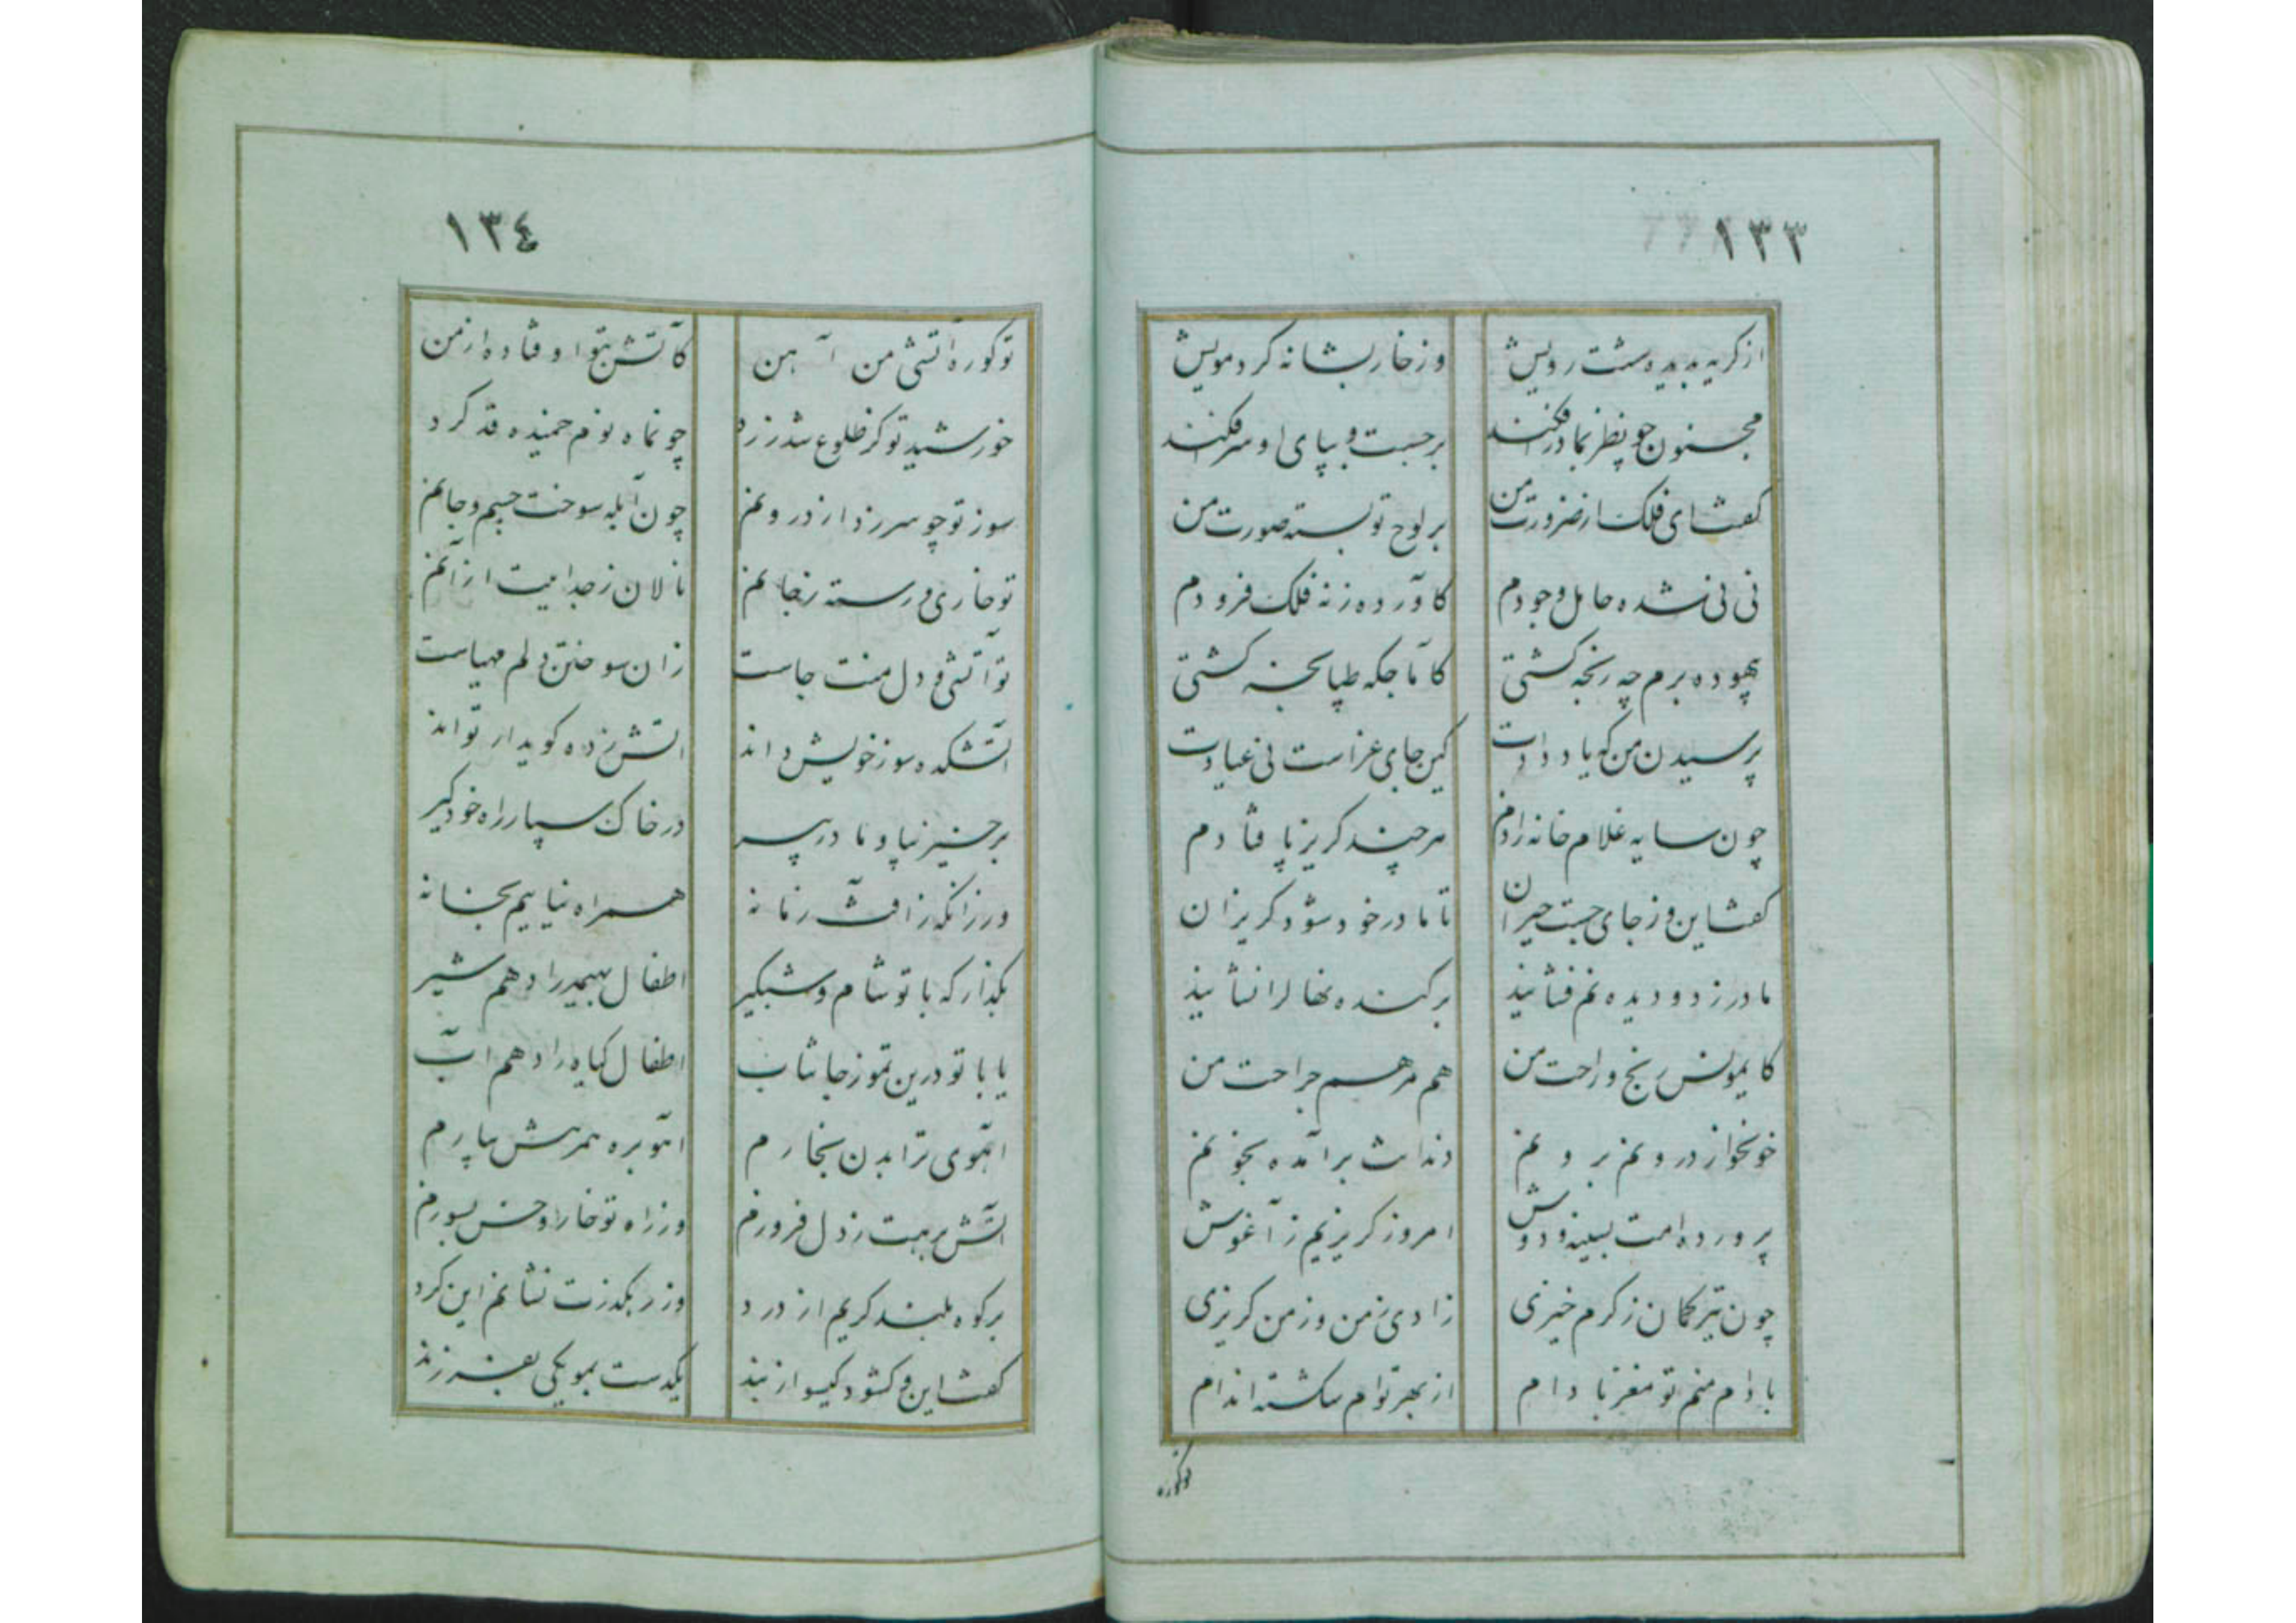 ١٣٣
از گریه بدیده شست رویش وز خار بشانه کرد مویش
مجنون چو نظر بمادر افکند برجست و بپای او سر افکند
گفت ای فلک از ضرورت من بر لوح تو بسته صورت من
نی نی نشده حامل وجودم کآورده ز نه فلک فرودم
بیهوده برم چه رنجه گشتی کآماجکه طپانچه گشتی
پرسیدن من که یاد دادت کین جای عزاست نی عیادت
چون سایه غلام خانه زادم هرچند گریز پا فتادم
گفت این و ز جای جست حیران تا مادر خود شود گریزان
مادر ز دو دیده نم فشانید برکنده نهال را نشانید
کای مونس رنج و راحت من هم مرهم جراحت من
خونخوار درونم برونم دندانت برآمده بخونم
پرورده امت بسینه و دوش امروز گریزیم ز آغوش
چون تیر کمان ز گرم خیزی زادی ز من وز من گریزی
بادام منم تو مغز بادام از بهر توام شکسته اندام
توکوره
١٣٤
تو کوره آتشی من آهن کآتش بتو اوفتاده از من
خورشید تو کز طلوع شد زرد چون ماه نوم خمیده قد کرد
سوز تو چو سر زد از درونم چون آبله سوخت جسم و جانم
تو خاری و رسته ز خانم نالان ز جداییت از آنم
تو آتشی و دل منت جاست زان سوختن دلم مهیاست
آتشکده سوز خویش داند آتش زده کوی دار تواند
برخیز بیا و مادر پیر در خاک سپار راه خود گیر
ور زانکه ز آفت زمانه همراه نیاییم بخانه
بگذار که با تو شام و شبگیر اطفال بهیمه را دهم شیر
یا با تو درین تموز جانتاب اطفال گیاه را دهم آب
آهوی ترا بدن بخارم آهو بره همرهش بیارم
آتش برهت ز دل فروزم ور زاه تو خار و خس بسوزم
بر کوه بلند گریم از درد وز ریگذرت نشانم این گرد
گفت این و گشود گیسو از بند یکدست بموی یکی بفرزند